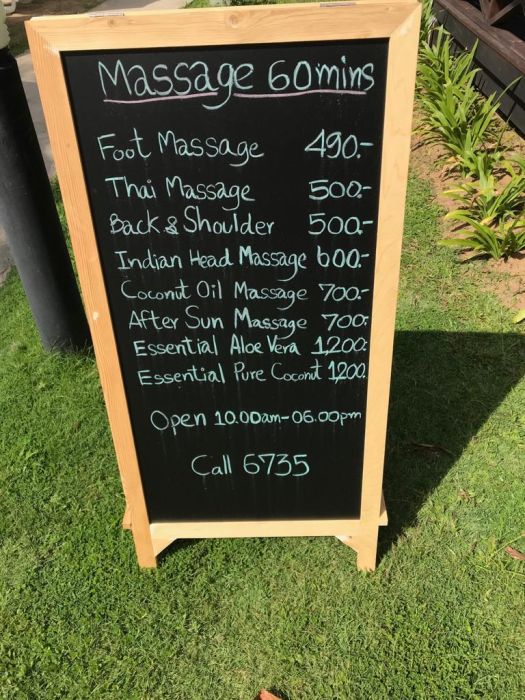 Massage 60mins
Foot Massage 490.-
Thai Massage 500.-
Back & Shoulder 500.-
Indian Head Massage 600.-
Coconut Oil Massage 700.-
After Sun Massage 700.-
Essential Aloe Vera 1200.
Essential Pure Coconut 1200.
Open 10.00am-06.00pm
Call 6735